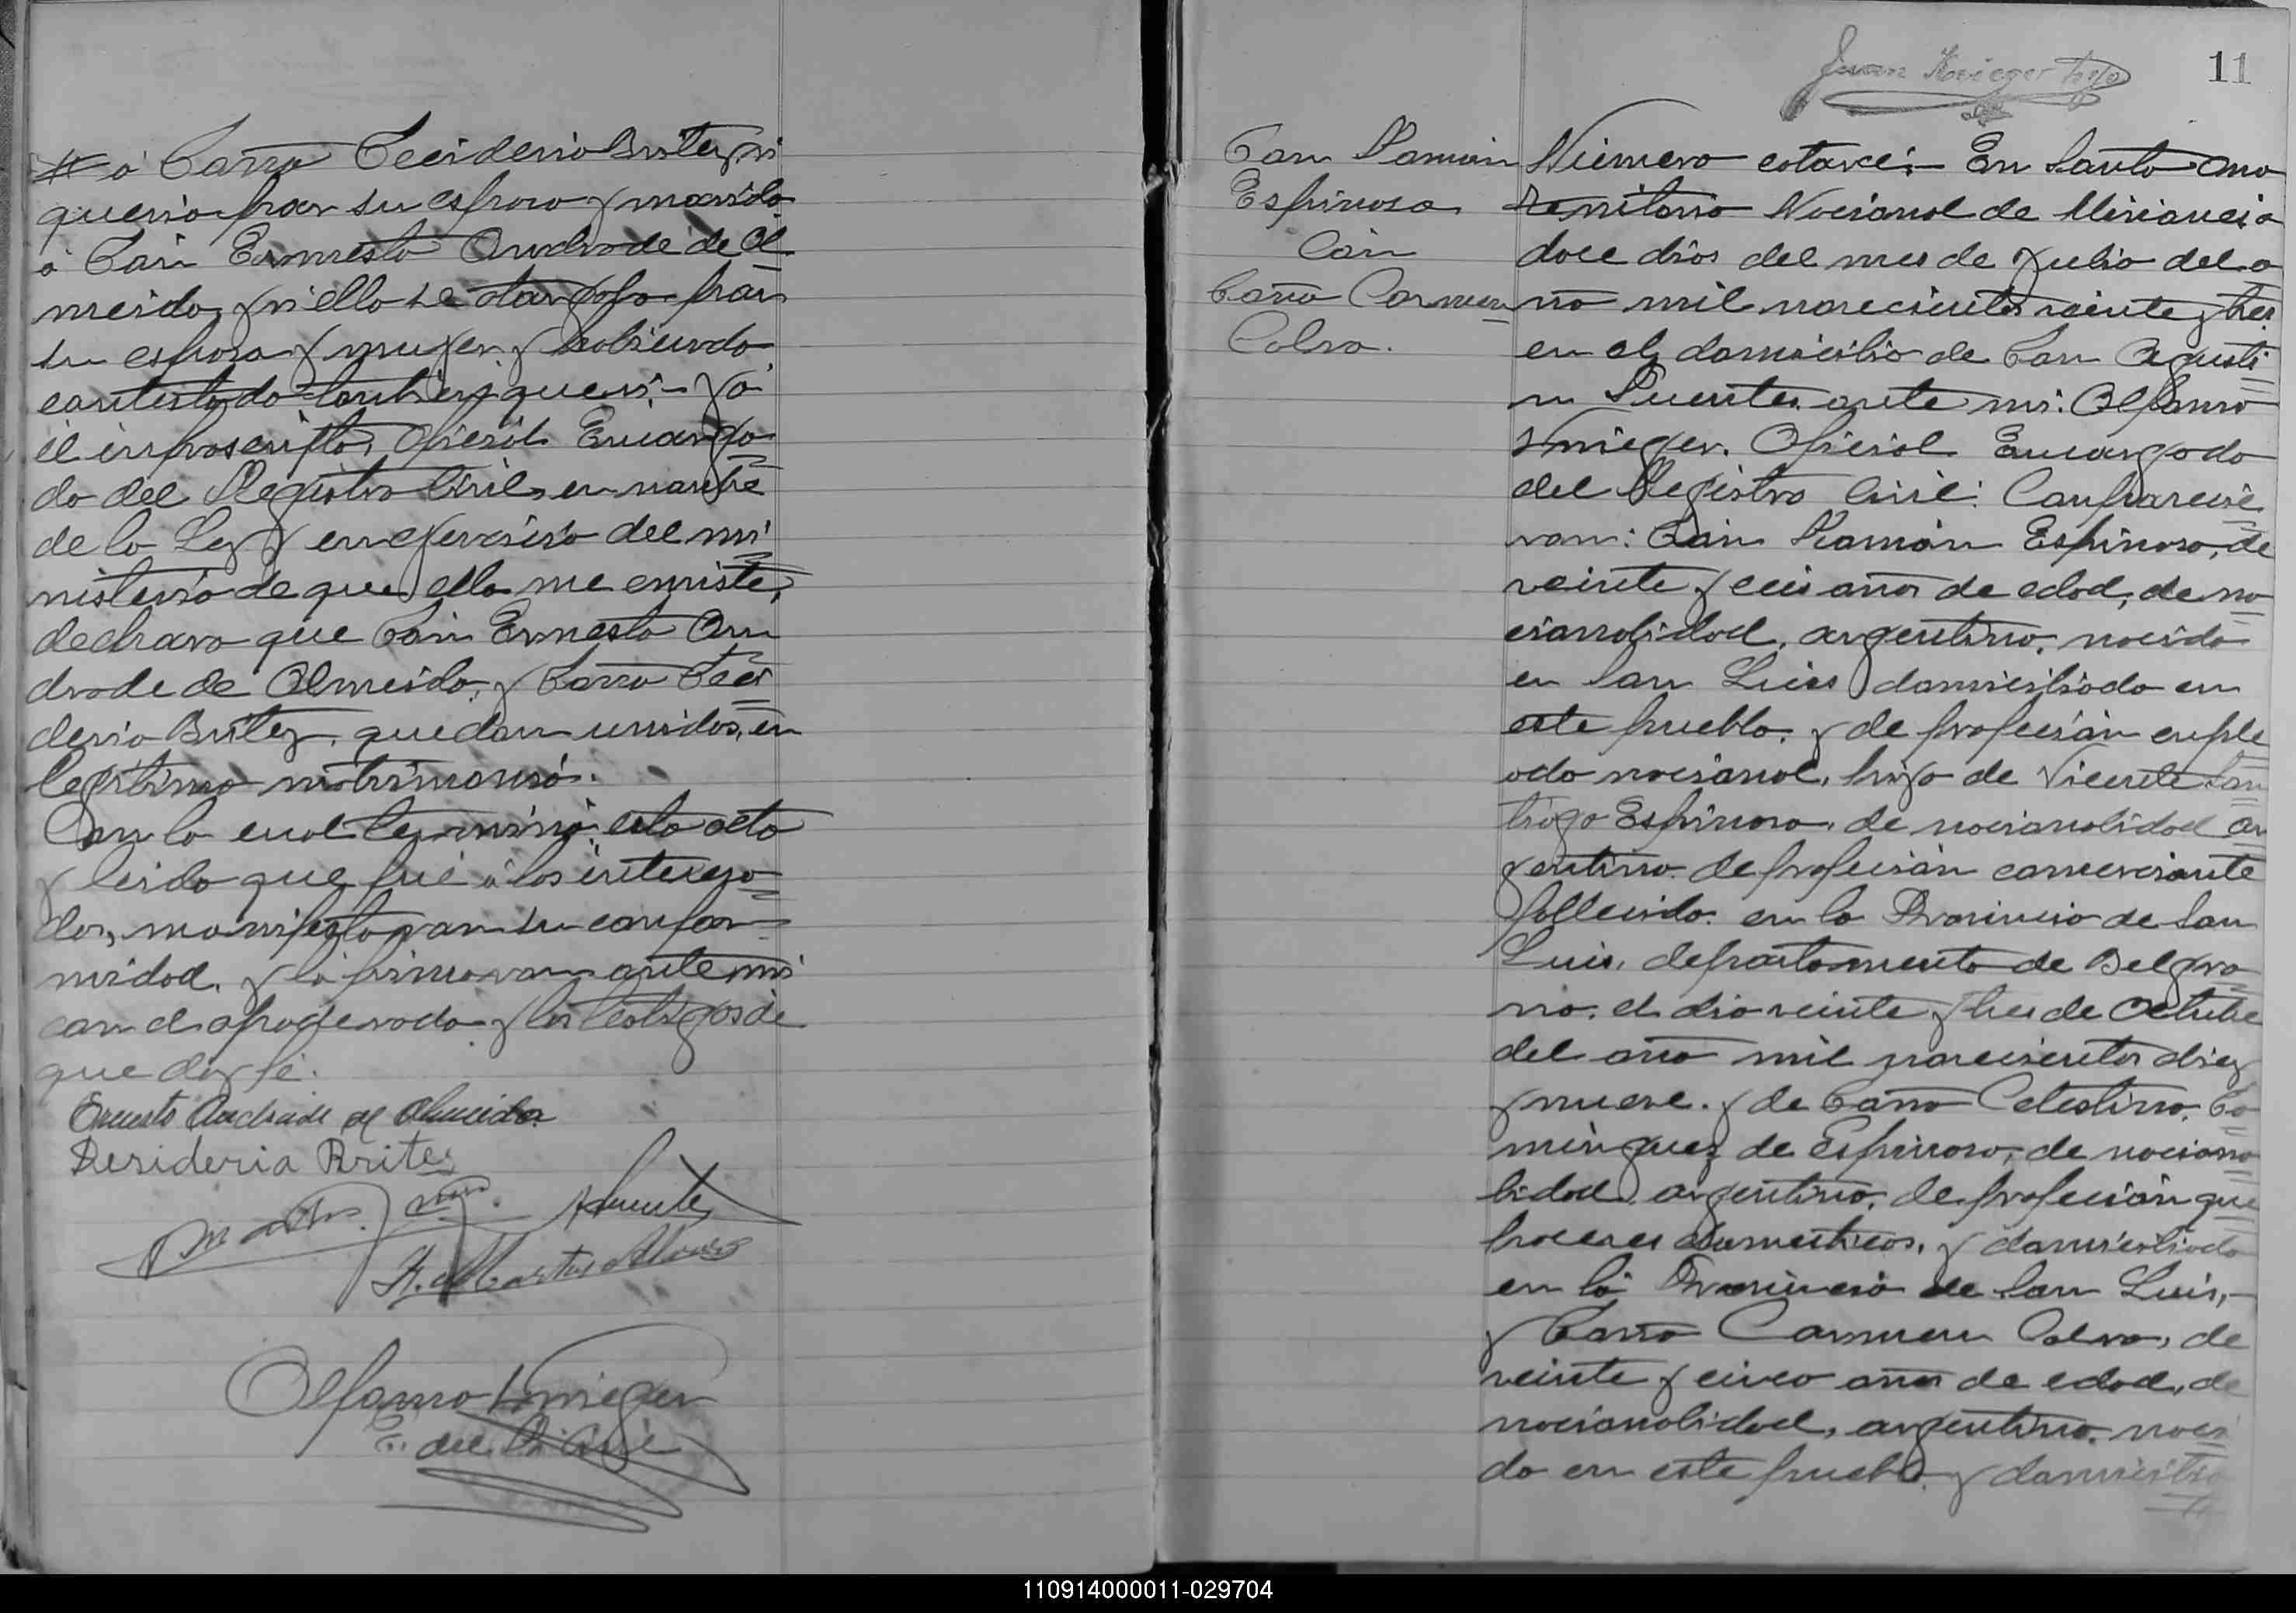 # á Doña Decideria Britez, si
queria por su esposo y marido
á Don Ernesto Andrade de Al
meida, y si ello se otorgaba por
su esposa y mujer, y habiendo
contestado tambien que si.- Yo
el infrascripto, Oficial Encarga
do del Registro Civil, en nombre
de la Ley y en ejercicio del mi
nisterio de que ella me enviste,
declaro que Don Ernesto An
drade de Almeida, y Doña Deci
deria Britez, quedan unidos, en
legitimo matrimonio.
Con lo cual termino esta acta
y leida que fué á los interesa
dos, manifestaron su confor
midad, y la firmaron ante mi
con el apoderado y los testigos de
que doy fé.
Ernesto Andrade de Almeida
Desideria Brites
A. Puente
H. Martus Alvarez
Alfonso Krieger
E. del R. Civil
Juan Krieger hijo
11
Don Ramón
Espinosa
Con
Doña Carmen
Colva.
Número catorce:- En Santo Ana
Territorio Nacional de Misiones, a
doce dias del mes de Julio del a
ño mil novecientos veinte y tres
en el domicilio de Don Agusti
n Puentes, ante mi: Alfonso
Krieger, Oficial Encargado
del Registro Civil: Comparecie
ron: Don Ramón Espinosa, de
veinte y seis años de edad, de na
cionalidad, argentino, nacido
en San Luis domiciliado en
este pueblo, y de profesión emple
ado nacional, hijo de Vicente San
tiago Espinosa, de nacionalidad ar
gentino de profesión comerciante
fallecido en la Provincia de San
Luis, departamento de Belgra
no, el dia veinte y tres de Octubre
del año mil novecientos diez
y nueve, y de Doña Celestina Do
minguez de Espinosa, de naciona
lidad argentina, de profesión que
haceres domesticos, y domiciliada
en la Provincia de San Luis,-
y Doña Carmen Colva, de
veinte y cinco años de edad, de
nacionalidad, argentina, naci
da en este pueblo, y domicilia
#
110914000011-029704